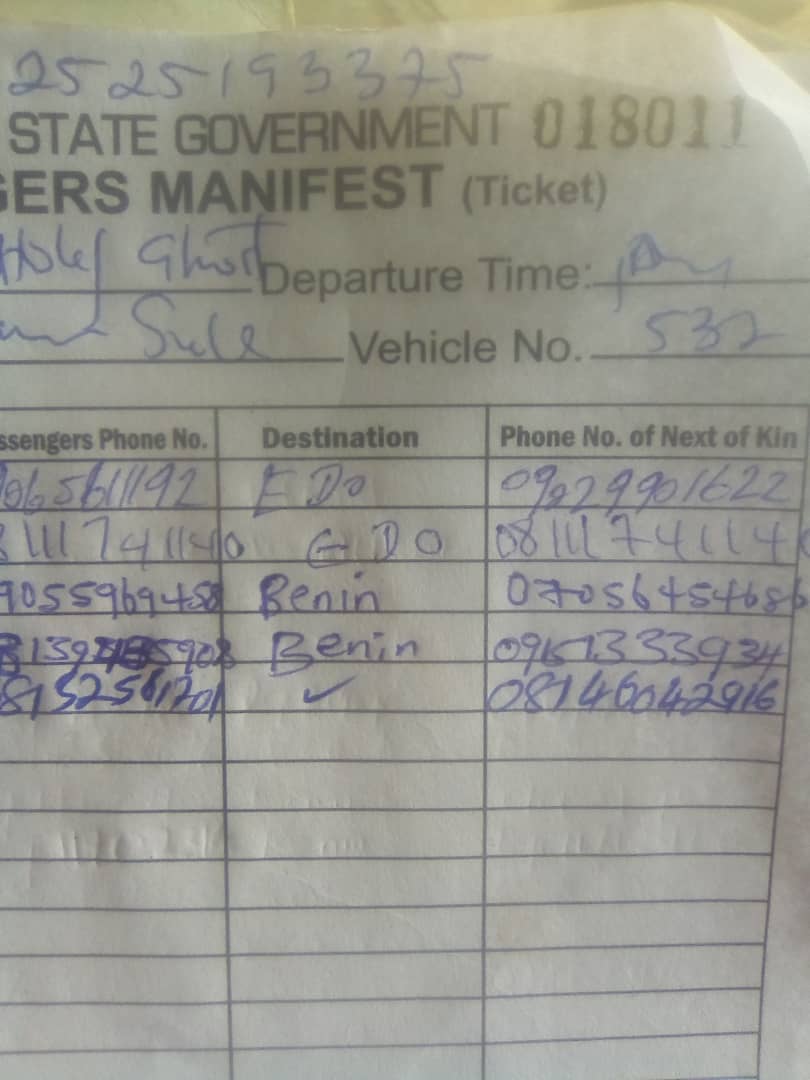 2525193375
STATE GOVERNMENT 018011
GERS MANIFEST (Ticket)
Holy Ghost Departure Time:
Sule Vehicle No. 532
ssengers Phone No. Destination Phone No. of Next of Kin
065611192 EDo 09029901622
8111741140 EDO 0811174114
9055969458 Benin 07056454686
Benin 09613333934
08152561201 ✓ 08146042916